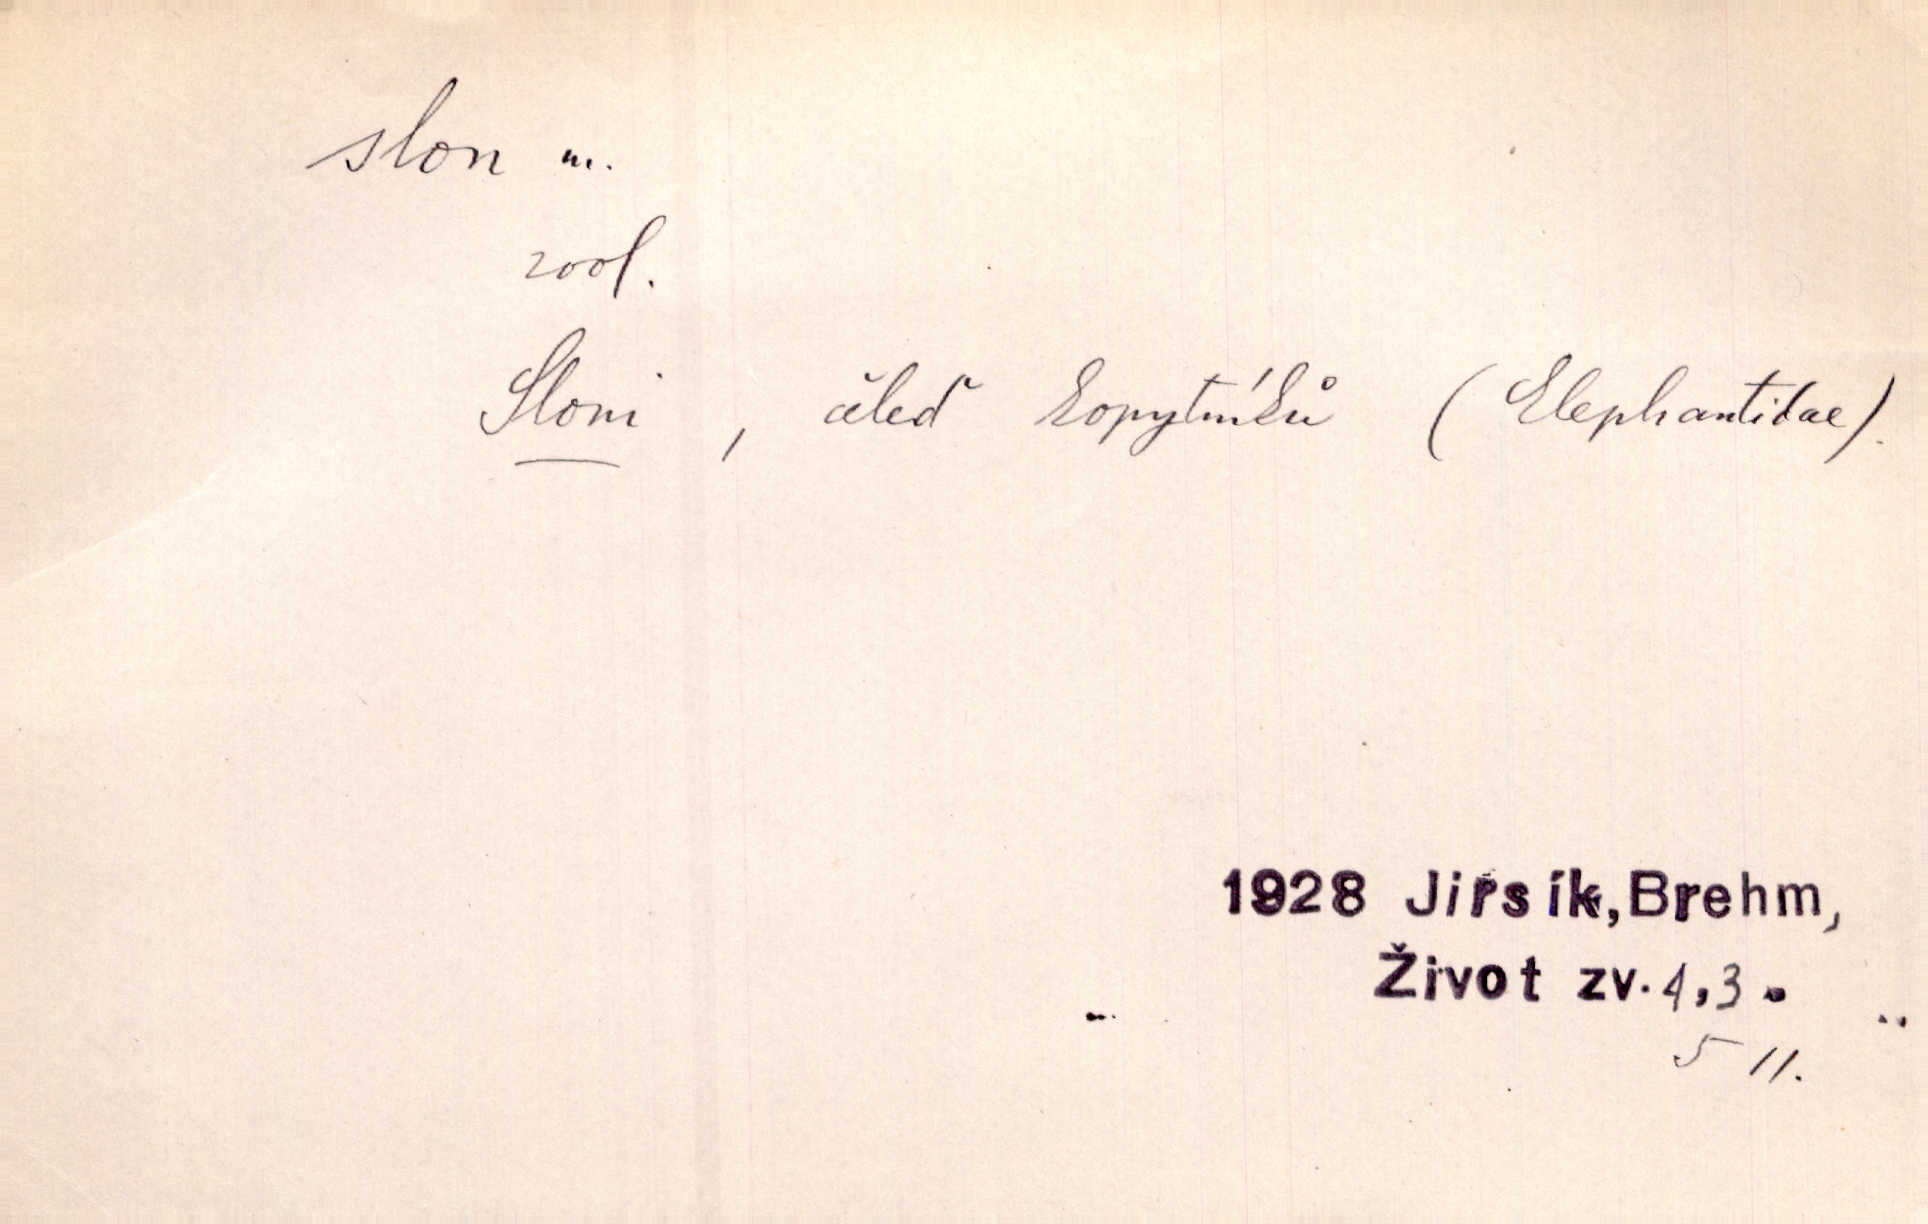 slon m.
zool.
Sloni , čeleď kopytníků (Elephantidae).
1928 Jirsík, Brehm,
Život zv. 4,3.
511.